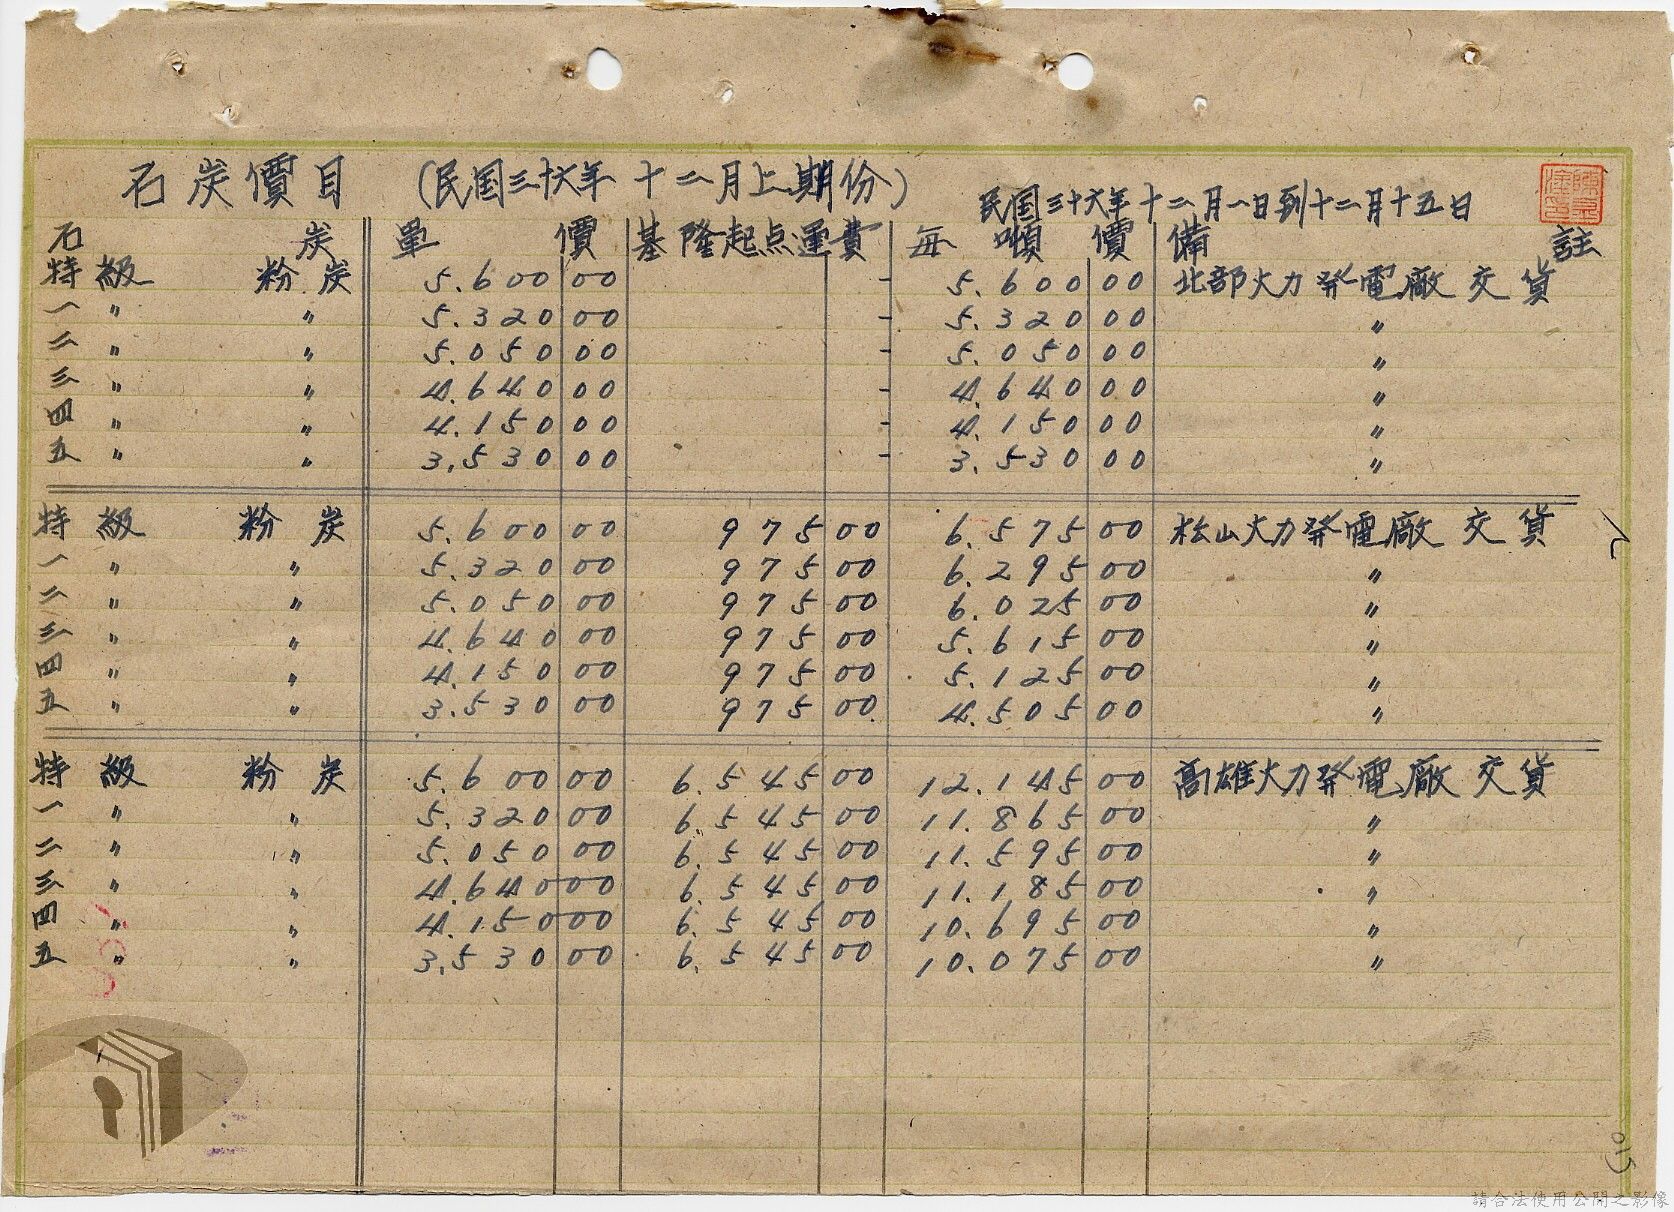 石炭價目 (民国三十六年十二月上期份)
民国三十六年十二月一日到十二月十五日
石炭 單價 基隆起点運費 每噸價 備註
特級粉炭 5.600 00 - 5.600 00 北部火力発電廠交貨
一 〃 〃 5.320 00 - 5.320 00 〃
二 〃 〃 5.050 00 - 5.050 00 〃
三 〃 〃 4.640 00 - 4.640 00 〃
四 〃 〃 4.150 00 - 4.150 00 〃
五 〃 〃 3.530 00 - 3.530 00 〃
特級粉炭 5.600 00 975 00 6.575 00 松山火力発電廠交貨
一 〃 〃 5.320 00 975 00 6.295 00 〃
二 〃 〃 5.050 00 975 00 6.025 00 〃
三 〃 〃 4.640 00 975 00 5.615 00 〃
四 〃 〃 4.150 00 975 00 5.125 00 〃
五 〃 〃 3.530 00 975 00 4.505 00 〃
特級粉炭 5.600 00 6.545 00 12.145 00 高雄火力発電廠交貨
一 〃 〃 5.320 00 6.545 00 11.865 00 〃
二 〃 〃 5.050 00 6.545 00 11.595 00 〃
三 〃 〃 4.640 00 6.545 00 11.185 00 〃
四 〃 〃 4.150 00 6.545 00 10.695 00 〃
五 〃 〃 3.530 00 6.545 00 10.075 00 〃
015
請合法使用公開之影像